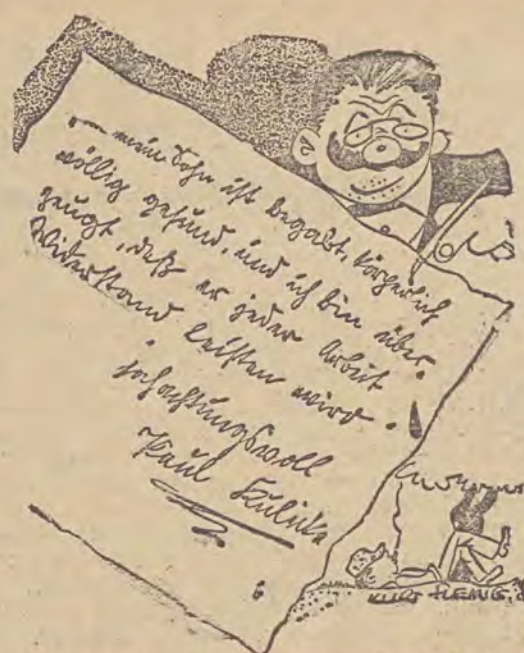 — mein Sohn ist begabt, körperlich
völlig gesund, und ich bin über-
zeugt, daß er jeder Arbeit
Widerstand leisten wird.
Hochachtungsvoll
Paul
KURT